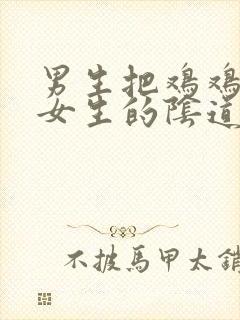 男生把鸡鸡
女生的陰道
不披馬甲太銷